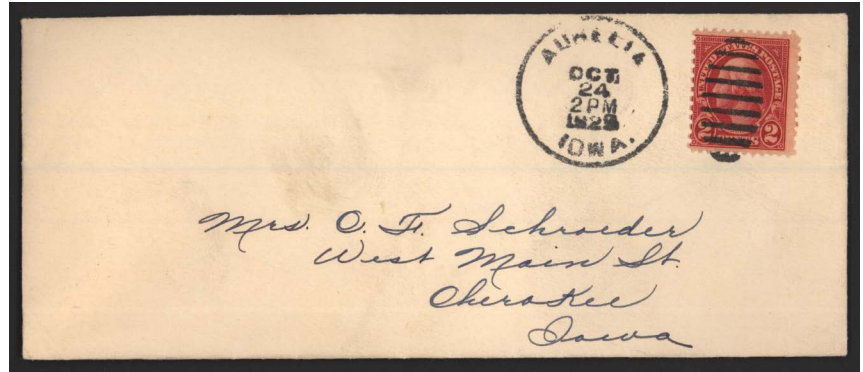 AURELIA
OCT
24
2 PM
1929
IOWA.
UNITED STATES POSTAGE
2 CENTS 2
Mrs. C. F. Schroeder
West Main St.
Cherokee
Iowa